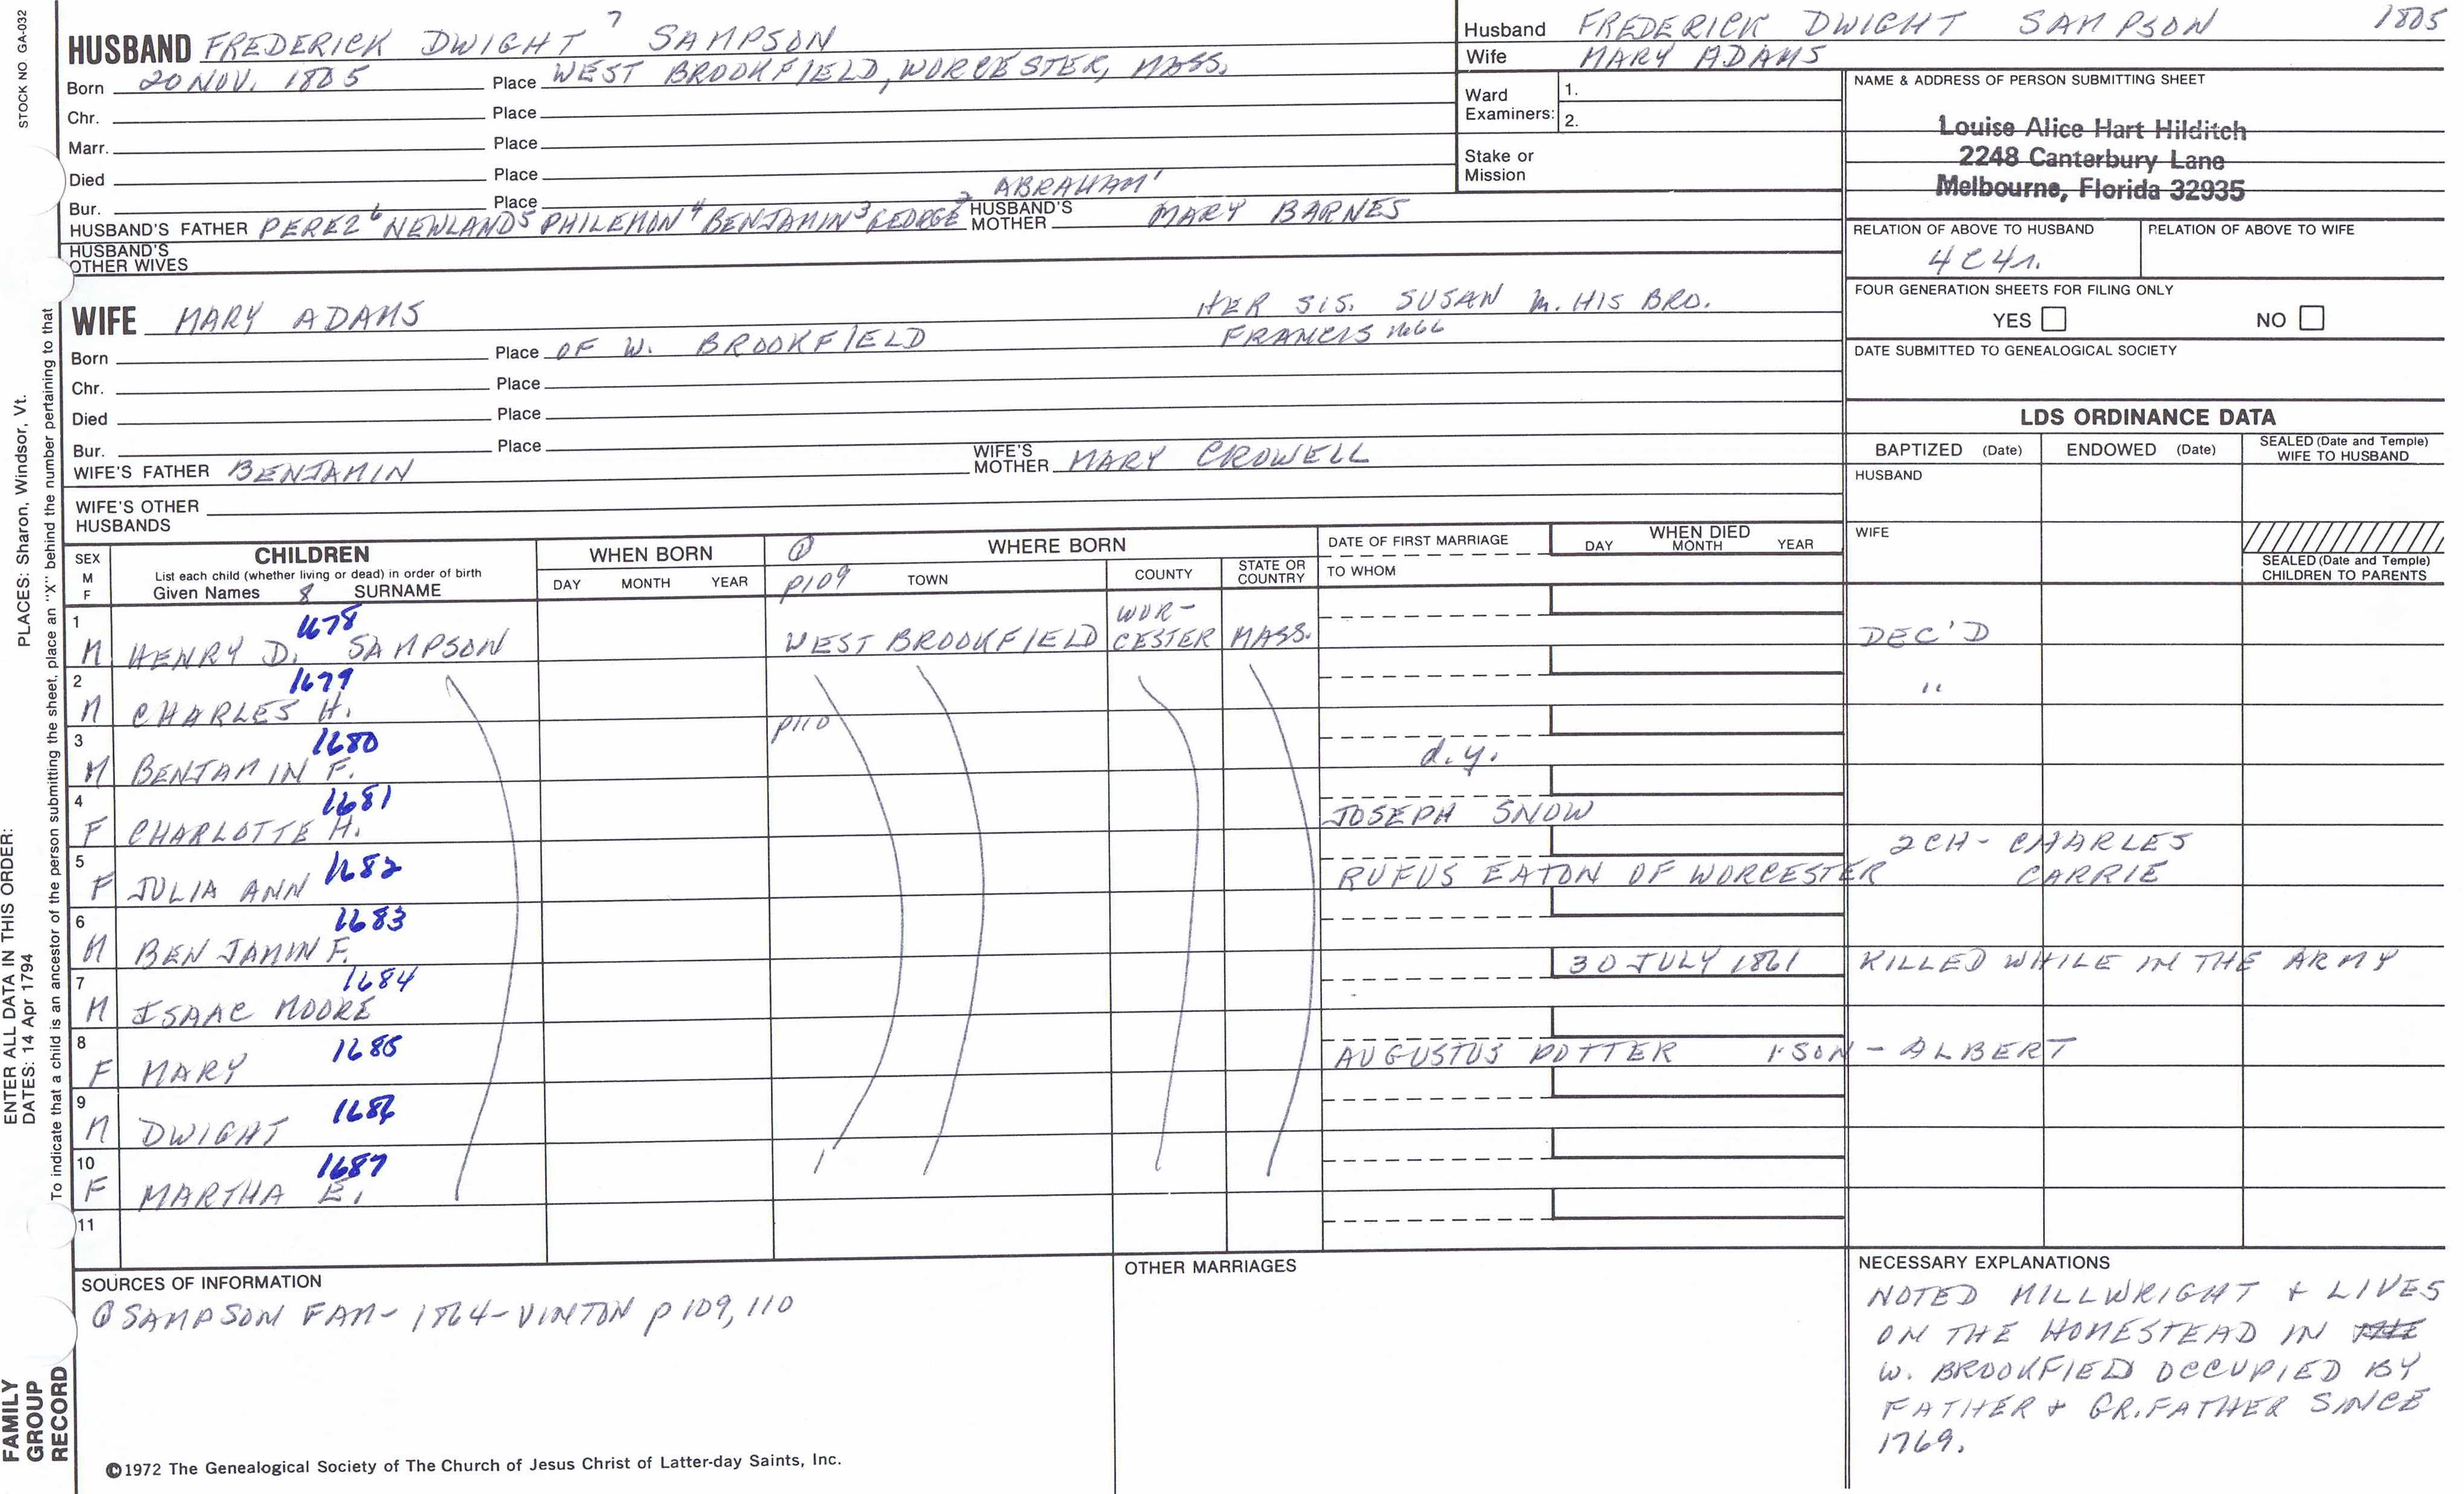 STOCK NO. GA-032
HUSBAND FREDERICK DWIGHT 7 SAMPSON
Born 20 NOV. 1805 Place WEST BROOKFIELD, WORCESTER, MASS.
Chr. Place
Marr. Place
Died Place
Bur. Place ABRAHAM 1
HUSBAND'S FATHER PEREZ 6 NEWLAND 5 PHILEMON 4 BENJAMIN 3 GEORGE 2 HUSBAND'S MOTHER MARY BARNES
HUSBAND'S OTHER WIVES
Husband FREDERICK DWIGHT SAMPSON 1805
Wife MARY ADAMS
Ward Examiners: 1.
2.
Stake or Mission
NAME & ADDRESS OF PERSON SUBMITTING SHEET
Louise Alice Hart Hilditch
2248 Canterbury Lane
Melbourne, Florida 32935
RELATION OF ABOVE TO HUSBAND RELATION OF ABOVE TO WIFE
4C4r.
FOUR GENERATION SHEETS FOR FILING ONLY
YES NO
DATE SUBMITTED TO GENEALOGICAL SOCIETY
WIFE MARY ADAMS HER SIS. SUSAN m. HIS BRO.
FRANCIS 1666
Born Place OF W. BROOKFIELD
Chr. Place
Died Place
Bur. Place
WIFE'S FATHER BENJAMIN WIFE'S MOTHER MARY CROWELL
WIFE'S OTHER HUSBANDS
LDS ORDINANCE DATA
BAPTIZED (Date) ENDOWED (Date) SEALED (Date and Temple) WIFE TO HUSBAND
HUSBAND
WIFE
SEALED (Date and Temple) CHILDREN TO PARENTS
SEX M F
CHILDREN
List each child (whether living or dead) in order of birth
Given Names 8 SURNAME
WHEN BORN
DAY MONTH YEAR
① WHERE BORN
p109 TOWN COUNTY STATE OR COUNTRY
DATE OF FIRST MARRIAGE
TO WHOM
WHEN DIED
DAY MONTH YEAR
1 M HENRY D. 1678 SAMPSON WEST BROOKFIELD WOR-CESTER MASS. DEC'D
2 M CHARLES H. 1679 "
3 M BENJAMIN F. 1680 p110 d.y.
4 F CHARLOTTE H. 1681 JOSEPH SNOW
5 F JULIA ANN 1682 RUFUS EATON OF WORCESTER 2CH- CHARLES
CARRIE
6 M BENJAMIN F. 1683
7 M ISAAC MOORE 1684 30 JULY 1861 KILLED WHILE IN THE ARMY
8 F MARY 1685 AUGUSTUS POTTER 1 SON - ALBERT
9 M DWIGHT 1686
10 F MARTHA E. 1687
11
SOURCES OF INFORMATION
① SAMPSON FAM- 1864- VINTON p 109, 110
OTHER MARRIAGES
NECESSARY EXPLANATIONS
NOTED MILLWRIGHT + LIVES
ON THE HOMESTEAD IN THE
W. BROOKFIELD OCCUPIED BY
FATHER + GR.FATHER SINCE
1769.
©1972 The Genealogical Society of The Church of Jesus Christ of Latter-day Saints, Inc.
FAMILY GROUP RECORD
ENTER ALL DATA IN THIS ORDER:
DATES: 14 Apr 1794 PLACES: Sharon, Windsor, Vt.
To indicate that a child is an ancestor of the person submitting the sheet, place an "X" behind the number pertaining to that